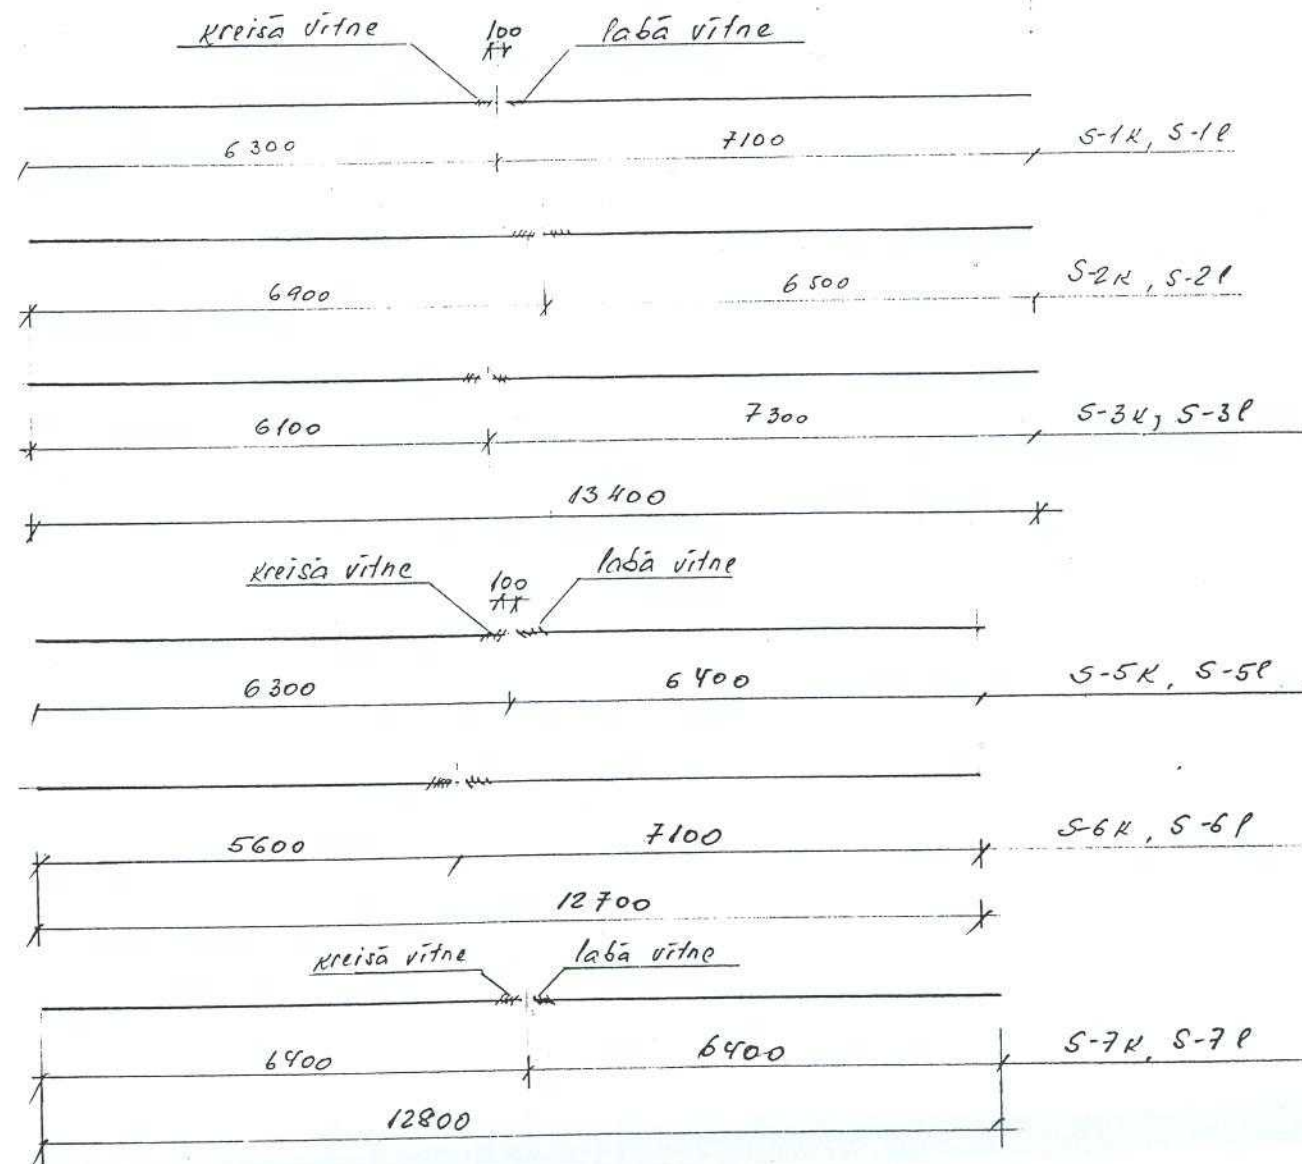 kreisā vītne 100 labā vītne
6300 7100 S-1k, S-1l
6900 6500 S-2k, S-2l
6100 7300 S-3k, S-3l
13400
kreisā vītne 100 labā vītne
6300 6400 S-5k, S-5l
5600 7100 S-6k, S-6l
12700
kreisā vītne labā vītne
6400 6400 S-7k, S-7l
12800